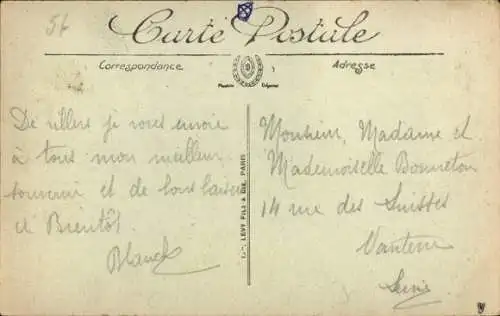 56
Carte Postale
Correspondance
Adresse
De villers je vous envoie
à tous mon meilleur
souvenir et de bons baisers
et Bientôt
Blanch
LEVY FILS & Cie, PARIS
Monsieur, Madame et
Mademoiselle Bonneton
14 rue des Suisses
Nanterre
Seine